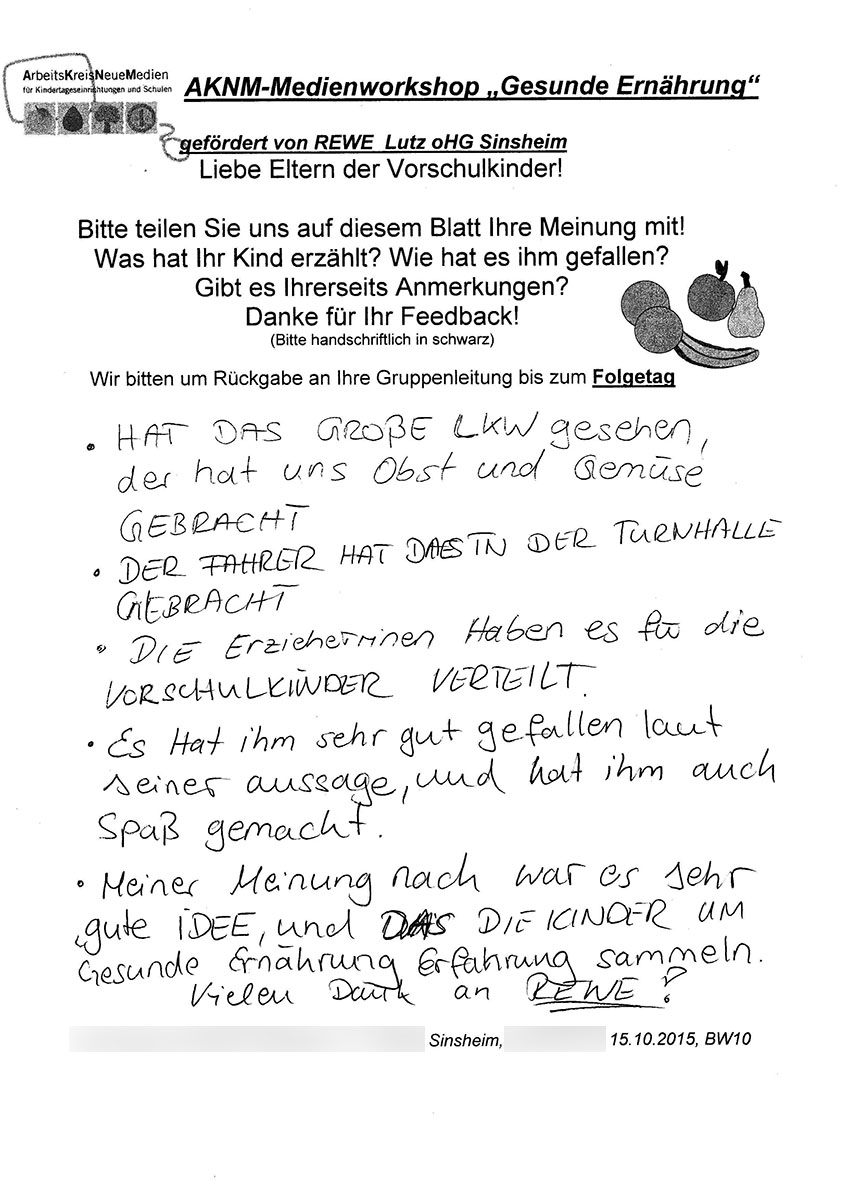 ArbeitsKreisNeueMedien
für Kindertageseinrichtungen und Schulen
AKNM-Medienworkshop „Gesunde Ernährung“
gefördert von REWE Lutz oHG Sinsheim
Liebe Eltern der Vorschulkinder!
Bitte teilen Sie uns auf diesem Blatt Ihre Meinung mit!
Was hat Ihr Kind erzählt? Wie hat es ihm gefallen?
Gibt es Ihrerseits Anmerkungen?
Danke für Ihr Feedback!
(Bitte handschriftlich in schwarz)
Wir bitten um Rückgabe an Ihre Gruppenleitung bis zum Folgetag
• HAT DAS GROßE LKW gesehen,
der hat uns Obst und Gemüse
GEBRACHT
• DER FAHRER HAT DAS IN DER TURNHALLE
GEBRACHT
• DIE Erzieherrinen Haben es für die
VORSCHULKINDER VERTEILT.
• Es Hat ihm sehr gut gefallen laut
seiner aussage, und hat ihm auch
Spaß gemacht.
• Meiner Meinung nach war es sehr
gute IDEE, und DAS DIE KINDER UM
Gesunde Ernährung Erfahrung sammeln.
Vielen Dank an REWE!
Sinsheim, 15.10.2015, BW10